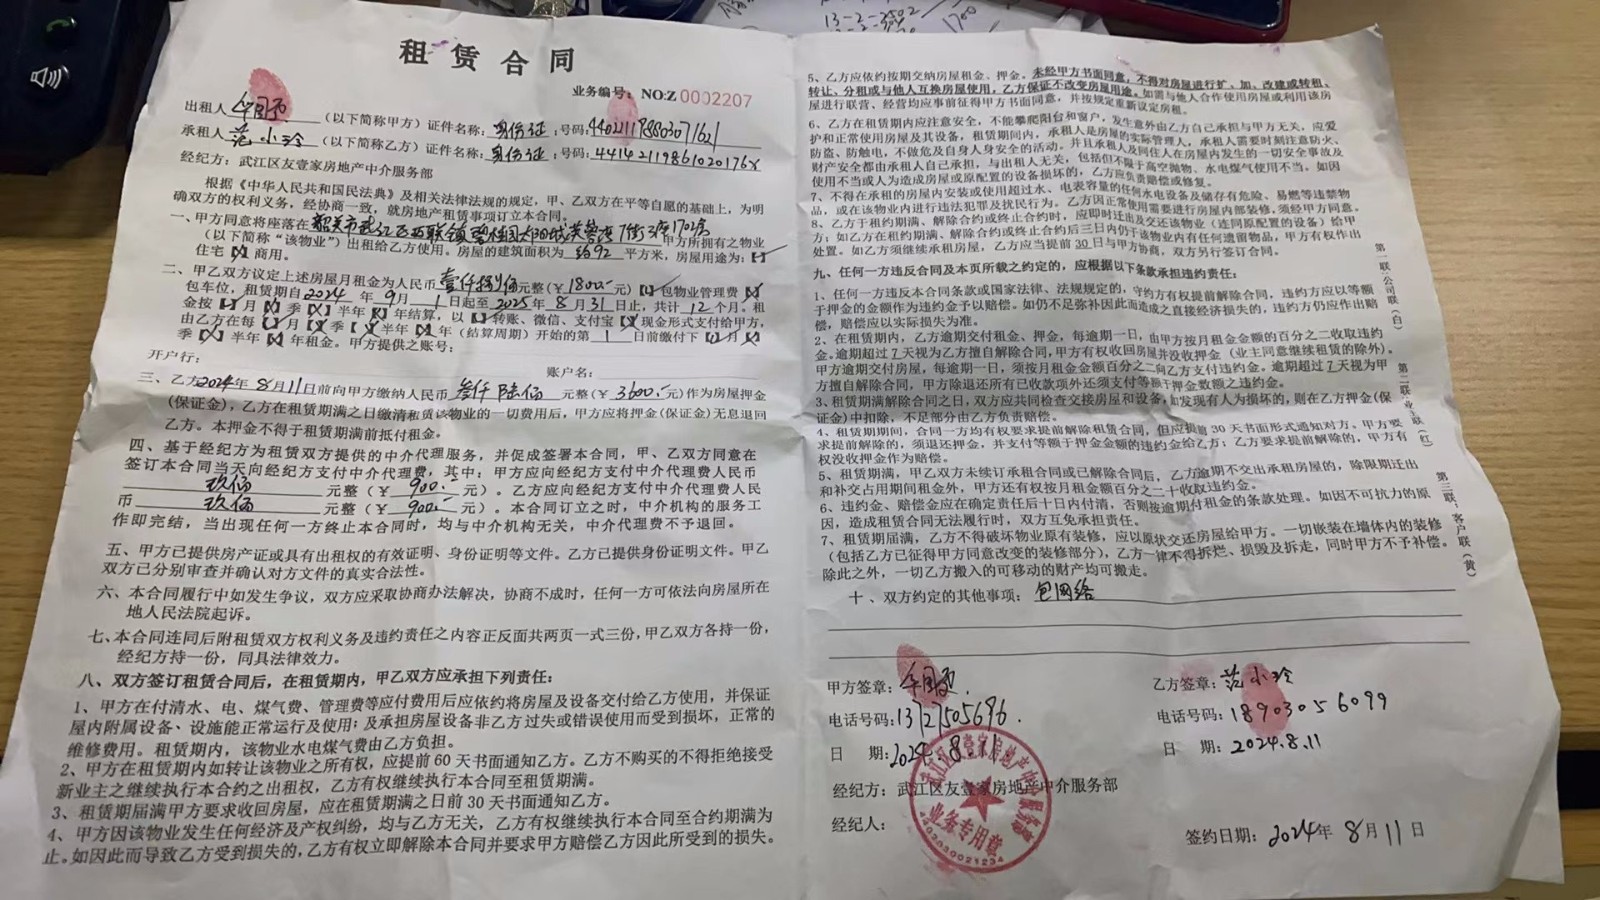 13-2-3502
1700
租赁合同
业务编号：NO:Z 0002207
出租人 (以下简称甲方) 证件名称：身份证：号码：
承租人 范小玲 (以下简称乙方) 证件名称：身份证：号码：44142119861020176X
经纪方：武江区友壹家房地产中介服务部
根据《中华人民共和国民法典》及相关法律法规的规定，甲、乙双方在平等自愿的基础上，为明
确双方的权利义务，经协商一致，就房地产租赁事项订立本合同。
一、甲方同意将座落在韶关市武江区西联镇碧桂园太阳城芙蓉 7街3座1702房 甲方所拥有之物业
(以下简称“该物业”) 出租给乙方使用。房屋的建筑面积为 约92 平方米，房屋用途为：【】
住宅【】商用。
二、甲乙双方议定上述房屋月租金为人民币 壹仟捌佰 元整(￥1800.- 元)【】包物业管理费【】
包车位，租赁期自2024 年 9月 1 日起至 2025年 8 月 31 日止，共计 12 个月。租
金按【】月【】季【】半年【】年结算，以【】转账、微信、支付宝【】现金形式支付给甲方，
由乙方在每【】月【】季【】半年【】年（结算周期）开始的第 1 日前缴付下【】月【】
季【】半年【】年租金。甲方提供之账号：
开户行： 账户名：
三、乙方2024年8月11日前向甲方缴纳人民币 叁仟陆佰 元整(￥3600.- 元)作为房屋押金
(保证金)，乙方在租赁期满之日缴清租赁该物业的一切费用后，甲方应将押金(保证金)无息退回
乙方。本押金不得于租赁期满前抵付租金。
四、基于经纪方为租赁双方提供的中介代理服务，并促成签署本合同，甲、乙双方同意在
签订本合同当天向经纪方支付中介代理费，其中：甲方应向经纪方支付中介代理费人民币
玖佰 元整（￥ 900.- 元）。乙方应向经纪方支付中介代理费人民
币 玖佰 元整（￥ 900.- 元）。本合同订立之时，中介机构的服务工
作即完结，当出现任何一方终止本合同时，均与中介机构无关，中介代理费不予退回。
五、甲方已提供房产证或具有出租权的有效证明、身份证明等文件。乙方已提供身份证明文件。甲乙
双方已分别审查并确认对方文件的真实合法性。
六、本合同履行中如发生争议，双方应采取协商办法解决，协商不成时，任何一方可依法向房屋所在
地人民法院起诉。
七、本合同连同后附租赁双方权利义务及违约责任之内容正反面共两页一式三份，甲乙双方各持一份，
经纪方持一份，同具法律效力。
八、双方签订租赁合同后，在租赁期内，甲乙双方应承担下列责任：
1、甲方在付清水、电、煤气费、管理费等应付费用后应依约将房屋及设备交付给乙方使用，并保证
屋内附属设备、设施能正常运行及使用；及承担房屋设备非乙方过失或错误使用而受到损坏，正常的
维修费用。租赁期内，该物业水电煤气费由乙方负担。
2、甲方在租赁期内如转让该物业之所有权，应提前60天书面通知乙方。乙方不购买的不得拒绝接受
新业主之继续执行本合约之出租权，乙方有权继续执行本合同至租赁期满。
3、租赁期届满甲方要求收回房屋，应在租赁期满之日前30天书面通知乙方。
4、甲方因该物业发生任何经济及产权纠纷，均与乙方无关，乙方有权继续执行本合同至合约期满为
止。如因此而导致乙方受到损失的，乙方有权立即解除本合同并要求甲方赔偿乙方因此所受到的损失。
5、乙方应依约按期交纳房屋租金、押金。未经甲方书面同意，不得对房屋进行扩、加、改建或转租、
转让、分租或与他人互换房屋使用，乙方保证不改变房屋用途。如需与他人合作使用房屋或利用该房
屋进行联营、经营均应事前征得甲方书面同意，并按规定重新议定房租。
6、乙方在租赁期内应注意安全，不能攀爬阳台和窗户，发生意外由乙方自己承担与甲方无关，应爱
护和正常使用房屋及其设备，租赁期间内，承租人是房屋的实际管理人，承租人需要时刻注意防火、
防盗、防触电，不做危及自身人身安全的活动。并且承租人及同住人在房屋内发生的一切安全事故及
财产安全都由承租人自己承担，与出租人无关，包括但不限于高空抛物、水电煤气使用不当。如因
使用不当或人为造成房屋或原配置的设备损坏的，乙方应负责赔偿或修复。
7、不得在承租的房屋内安装或使用超过水、电表容量的任何水电设备及储存有危险、易燃等违禁物
品，或在该物业内进行违法犯罪及扰民行为。乙方因正常使用需要进行房屋内部装修，须经甲方同意。
8、乙方于租赁期满、解除合约或终止合约时，应即时迁出及交还该物业（连同原配置的设备）给甲
方；如乙方在租约期满、解除合约或终止合约后三日内仍于该物业内有任何遗留物品，甲方有权作出
处置。如乙方须继续承租房屋，乙方应当提前30日与甲方协商，双方另行签订合同。
九、任何一方违反合同及本页所载之约定的，应根据以下条款承担违约责任：
1、任何一方违反本合同条款或国家法律、法规规定的，守约方有权提前解除合同，违约方应以等额
于押金的金额作为违约金予以赔偿。如仍不足弥补因此而造成之直接经济损失的，违约方仍应作出赔
偿，赔偿应以实际损失为准。
2、在租赁期内，乙方逾期交付租金、押金，每逾期一日，由甲方按月租金金额的百分之二收取违约
金。逾期超过7天视为乙方擅自解除合同，甲方有权收回房屋并没收押金（业主同意继续租赁的除外）。
甲方逾期交付房屋，每逾期一日，须按月租金金额百分之二向乙方支付违约金。逾期超过7天视为甲
方擅自解除合同，甲方除退还所有已收款项外还须支付等额于押金数额之违约金。
3、租赁期满解除合同之日，双方应共同检查交接房屋和设备，如发现有人为损坏的，则在乙方押金(保
证金)中扣除，不足部分由乙方负责赔偿。
4、租赁期期间，合同一方均有权要求提前解除租赁合同，但应提前30天书面形式通知对方、甲方要
求提前解除的，须退还押金，并支付等额于押金金额的违约金给乙方；乙方要求提前解除的，甲方有
权没收押金作为赔偿。
5、租赁期满，甲乙双方未续订承租合同或已解除合同后，乙方逾期不交出承租房屋的，除限期迁出
和补交占用期间租金外，甲方还有权按月租金额百分之二十收取违约金。
6、违约金、赔偿金应在确定责任后十日内付清，否则按逾期付租金的条款处理。如因不可抗力的原
因，造成租赁合同无法履行时，双方互免承担责任。
7、租赁期届满，乙方不得破坏物业原有装修，应以原状交还房屋给甲方。一切嵌装在墙体内的装修
(包括乙方已征得甲方同意改变的装修部分)，乙方一律不得拆烂、损毁及拆走，同时甲方不予补偿。
除此之外，一切乙方搬入的可移动的财产均可搬走。
十、双方约定的其他事项： 包网络
第一联：公司联（白）
第二联：业主联（红）
第三联：客户联（黄）
甲方签章：
乙方签章：范小玲
电话号码：13727505696.
电话号码：18903056099
日 期：2024.8.11
日 期：2024.8.11
经纪方：武江区友壹家房地产中介服务部
经纪人：
签约日期：2024年 8月11日
武江区友壹家房地产中介服务部
业务专用章